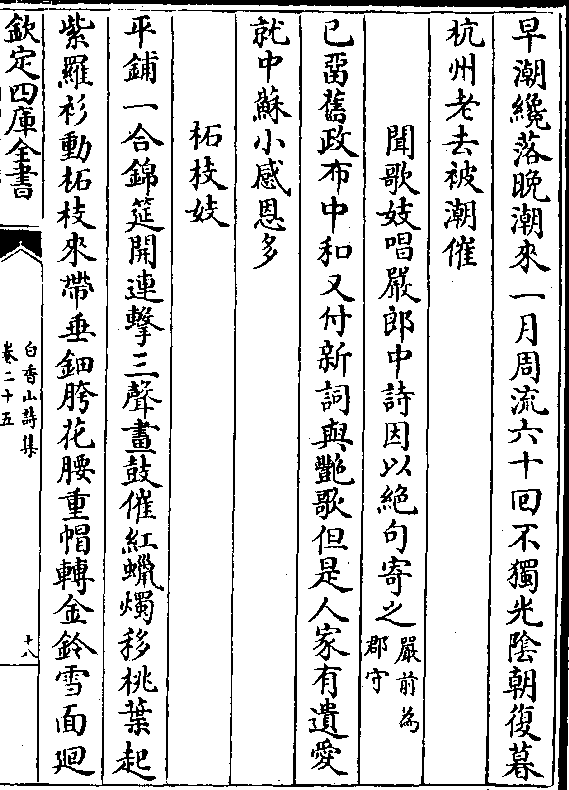 早潮纔落晩潮來一月周流六十囘不獨光陰朝復暮
杭州老去被潮催
聞歌妓唱嚴郎中詩因以絶句寄之嚴前為郡守
已畱舊政布中和又付新詞與艶歌但是人家有遺愛
就中蘇小感恩多
柘枝妓
平鋪一合錦筵開連擊三聲畫鼓催紅蠟燭移桃葉起
紫羅衫動柘枝來帶垂鈿胯花腰重帽轉金鈴雪面廻
欽定四庫全書
白香山詩集
卷二十五
十八